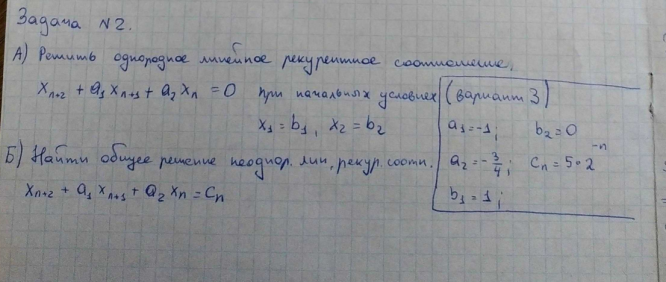 Задача N2.
А) Решить однородное линейное рекурентное соотношение.
x_{n+2} + a_1 x_{n+1} + a_2 x_n = 0 при начальных условиях
x_1 = b_1, x_2 = b_2
Б) Найти общее решение неоднор. лин. рекур. соотн.
x_{n+2} + a_1 x_{n+1} + a_2 x_n = c_n
(вариант 3)
a_1 = -1; b_2 = 0
a_2 = -\frac{3}{4}; c_n = 5 · 2^{-n}
b_1 = 1;